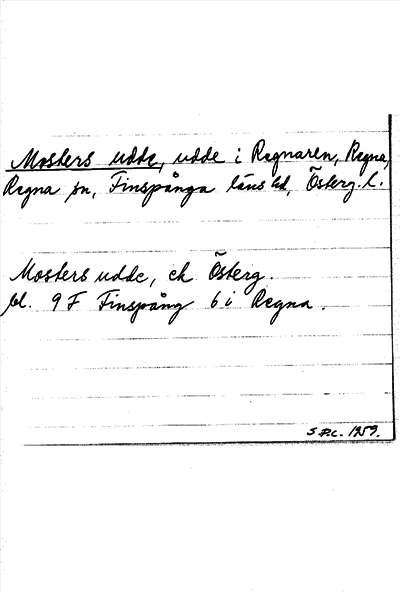 Mosters udde, udde i Regnaren, Regna,
Regna sn, Finspånga läns hd, Österg. l.
Mosters udde, ek Österg.
bl. 9F Finspång 6 i Regna.
1959.